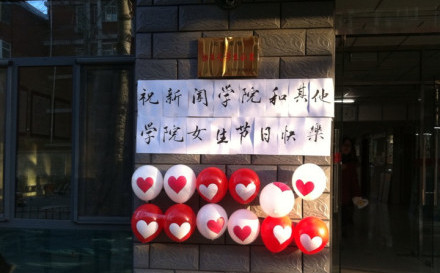 祝新闻学院和其他
学院女生节日快樂